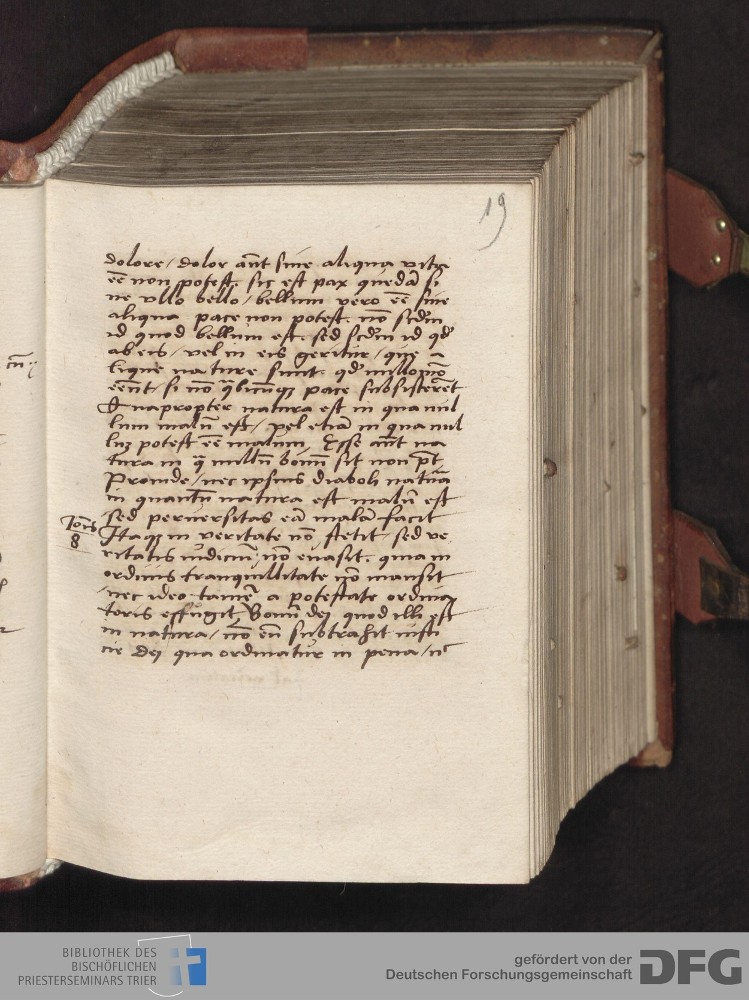 19
dolore / dolor aūt sine aliqua vita
eē non potest. sic est pax quedā si
ne vllo bello / bellum vero eē sine
aliqua pace non potest. nō scd̄m
id quod bellum est. sed scd̄m id qđ
ab eis / vel in eis geritur / que a
lique nature sunt. qđ nullomō
eēnt / si nō q̄licumqȝ pace subsisterēt
Quapropter natura est in qua nul
lum malū est / vel etiā in qua nul
luȝ potest eē malum. Esse aūt na
tura in q̄ nullū bonū sit non pt̄
Proinde / nec ipsius diaboli natura
in quantū natura est malū est
sed peruersitas eā malā facit
Itaqȝ in veritate nō stetit sed ve
ritatis iudiciū nō euasit. quia in
ordinis tranquillitate nō mansit
nec ideo tamē a potestate ordina
toris effugit Bonū dei quod illi est
in natura / nō eū subtrahit iusti
cie dei qua ordinatur in pena / n̄
Joīs
8
cū
BIBLIOTHEK DES
BISCHÖFLICHEN
PRIESTERSEMINARS TRIER
gefördert von der
Deutschen Forschungsgemeinschaft
DFG